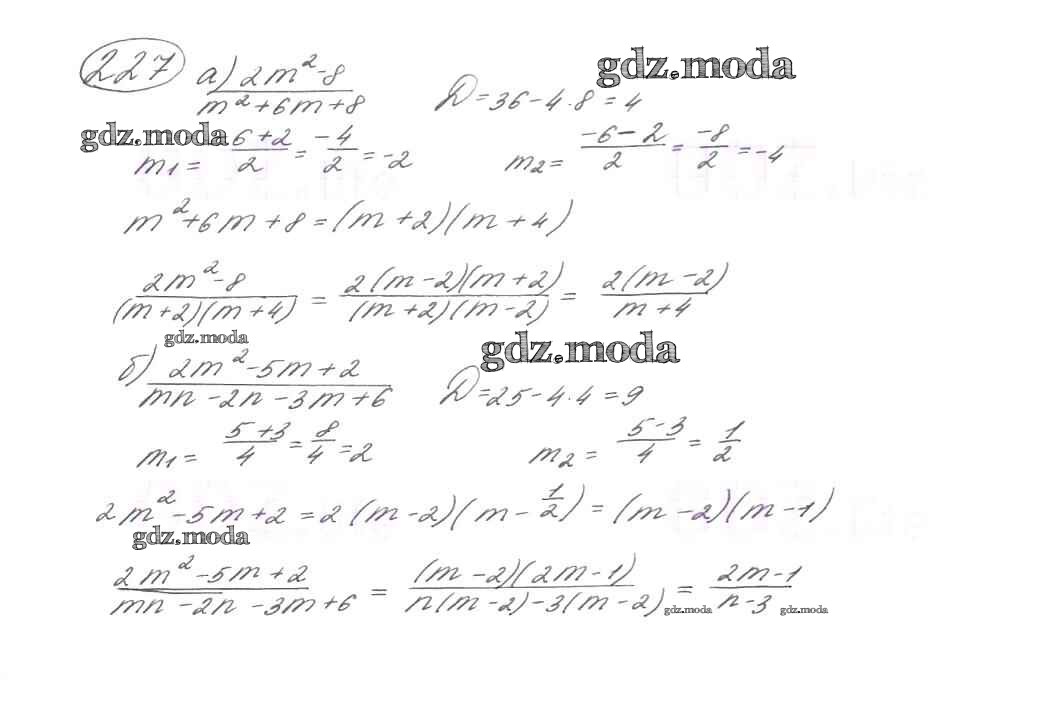 227 а) (2m² - 8)/(m² + 6m + 8) D = 36 - 4·8 = 4
gdz.moda
gdz.moda
m₁ = (6+2)/2 = (-4)/2 = -2 m₂ = (-6-2)/2 = (-8)/2 = -4
m² + 6m + 8 = (m+2)(m+4)
(2m² - 8)/((m+2)(m+4)) = (2(m-2)(m+2))/((m+2)(m-2)) = (2(m-2))/(m+4)
gdz.moda
gdz.moda
б) (2m² - 5m + 2)/(mn - 2n - 3m + 6) D = 25 - 4·4 = 9
m₁ = (5+3)/4 = 8/4 = 2 m₂ = (5-3)/4 = 1/2
2m² - 5m + 2 = 2(m-2)(m - 1/2) = (m-2)(m-1)
gdz.moda
(2m² - 5m + 2)/(mn - 2n - 3m + 6) = ((m-2)(2m-1))/(n(m-2) - 3(m-2)) = (2m-1)/(n-3)
gdz.moda gdz.moda